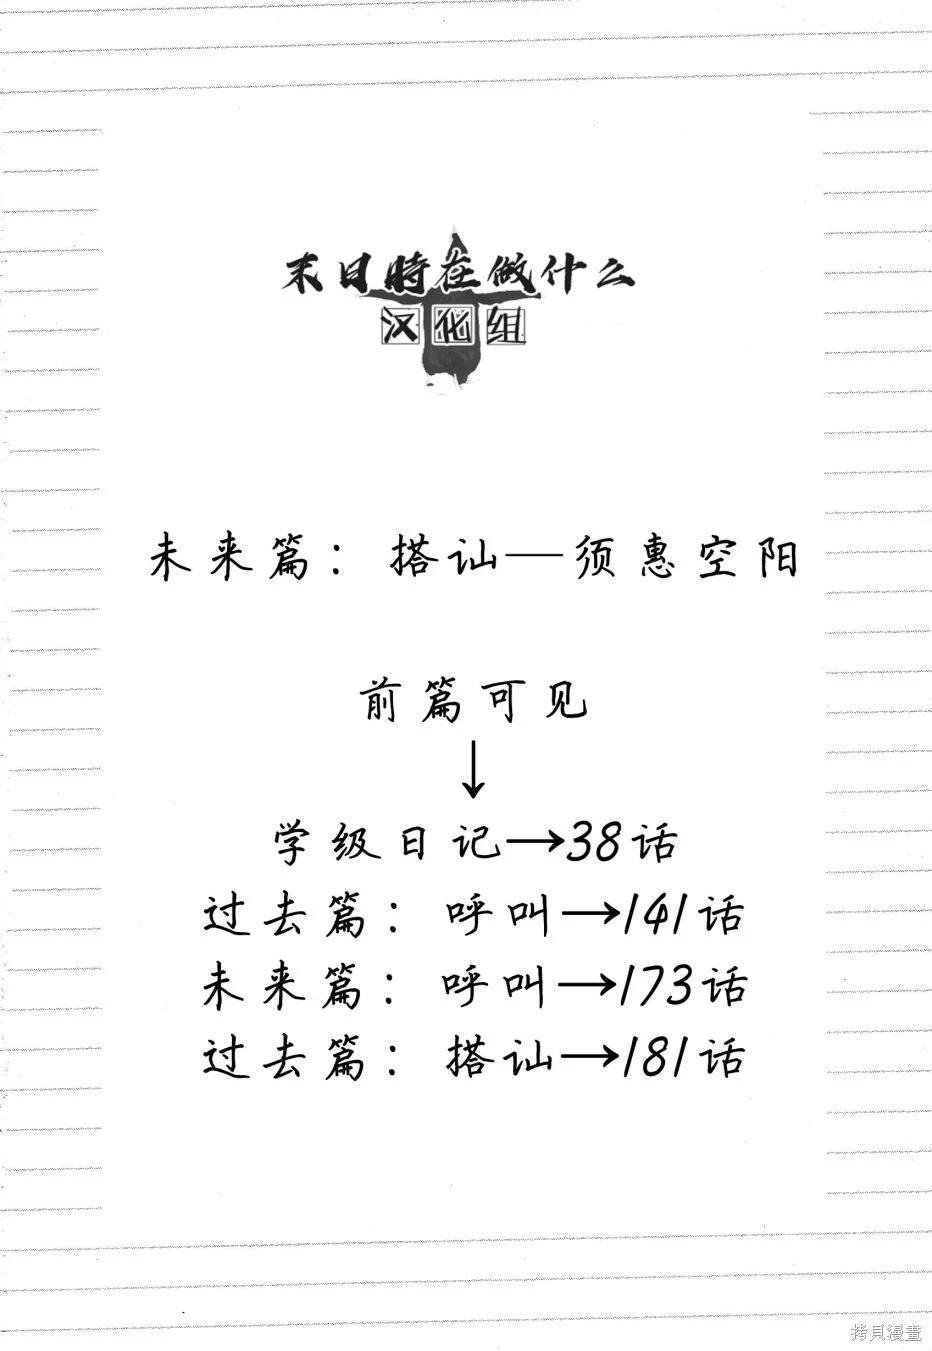 末日時在做什么
汉化组
未来篇：搭讪—须惠空阳
前篇可见
↓
学级日记→38话
过去篇：呼叫→141话
未来篇：呼叫→173话
过去篇：搭讪→181话
拷貝漫畫